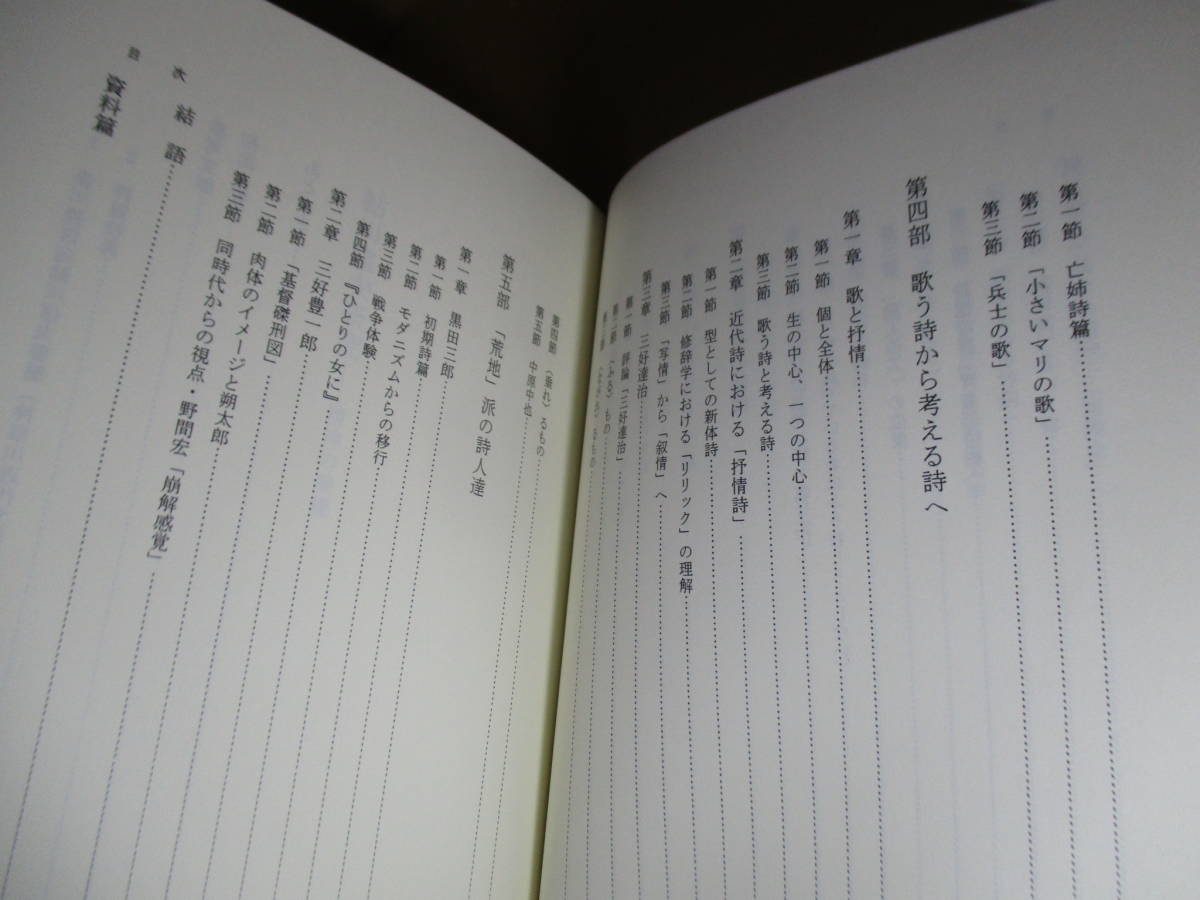 第一節 亡姉詩篇
第二節 「小さいマリの歌」
第三節 「兵士の歌」
第四部 歌う詩から考える詩へ
第一章 歌と抒情
第一節 個と全体
第二節 生の中心、一つの中心
第三節 歌う詩と考える詩
第二章 近代詩における「抒情詩」
第一節 型としての新体詩
第二節 修辞学における「リリック」の理解
第三節 「写情」から「叙情」へ
第三章 三好達治
第一節 評論「三好達治」
第二節 〈ふる〉もの
るもの
第四節 〈垂れ〉るもの
第五節 中原中也
第五部 「荒地」派の詩人達
第一章 黒田三郎
第一節 初期詩篇
第二節 モダニズムからの移行
第三節 戦争体験
第四節 『ひとりの女に』
第二章 三好豊一郎
第一節 「基督磔刑図」
第二節 肉体のイメージと朔太郎
第三節 同時代からの視点・野間宏「崩解感覚」
結語
資料篇
目次